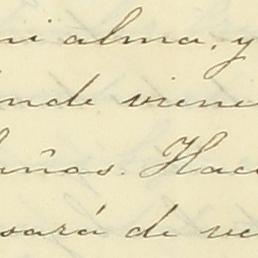 mi alma, y
onde viene
eñas. Hace
sará de ve